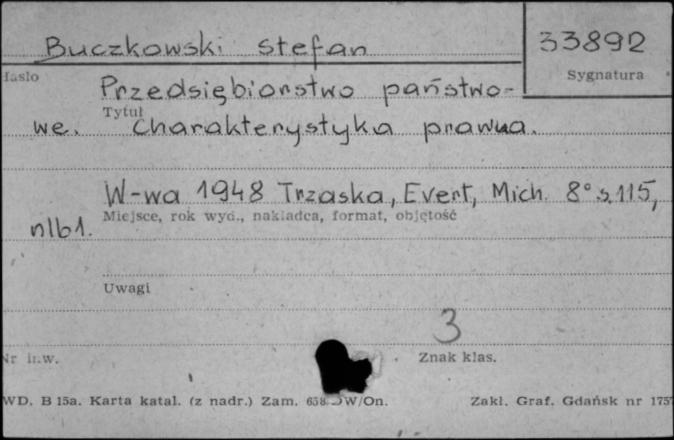 Buczkowski Stefan 33892
Hasło Sygnatura
Przedsiębiorstwo państwo-
Tytuł
we. Charakterystyka prawna.
W-wa 1948 Trzaska, Evert, Mich. 8° s. 115,
Miejsce, rok wyd., nakładca, format, objętość
nlb1.
Uwagi
3
Nr inw. Znak klas.
WD. B 15a. Karta katal. (z nadr.) Zam. W/On. Zakł. Graf. Gdańsk nr 175